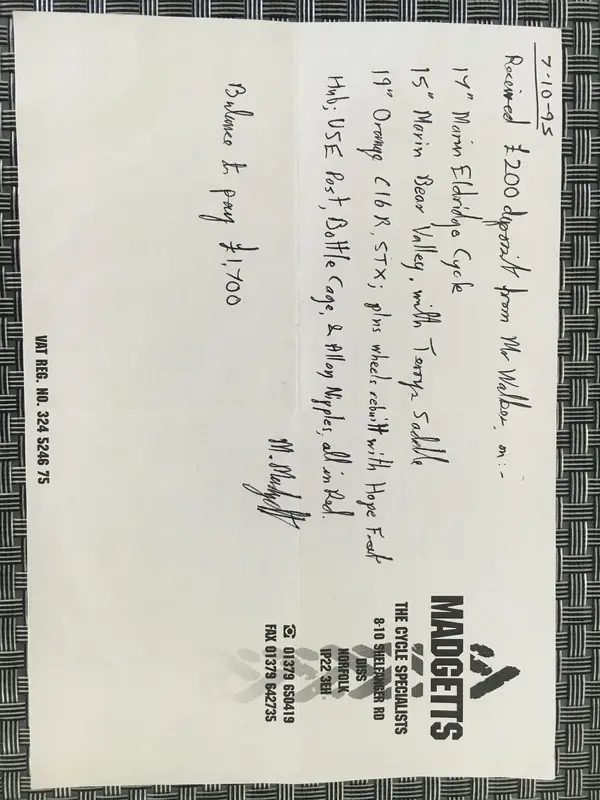 MADGETTS
THE CYCLE SPECIALISTS
8-10 SHELFANGER RD
DISS
NORFOLK
IP22 3EH
☎ 01379 650419
FAX 01379 642735
7-10-95
Received £200 deposit from Mr Walker, on :-
17" Marin Eldridge Cycle
15" Marin Bear Valley, with Terry Saddle
19" Orange C16R, STX; plus wheels rebuilt with Hope Front
Hub; USE Post, Bottle Cage, & Alloy Nipples, all in Red.
M. Madgett
Balance to pay £1,700
VAT REG. NO. 324 5246 75